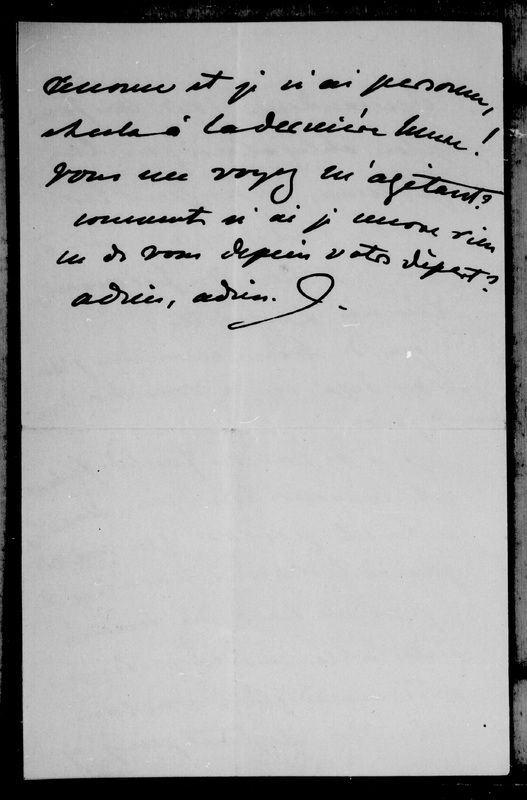 et je n'ai personne,
à la dernière heure!
Vous me voyez m'agitant?
comment n'ai je encore rien
eu de vous depuis votre départ?
adieu, adieu. J.